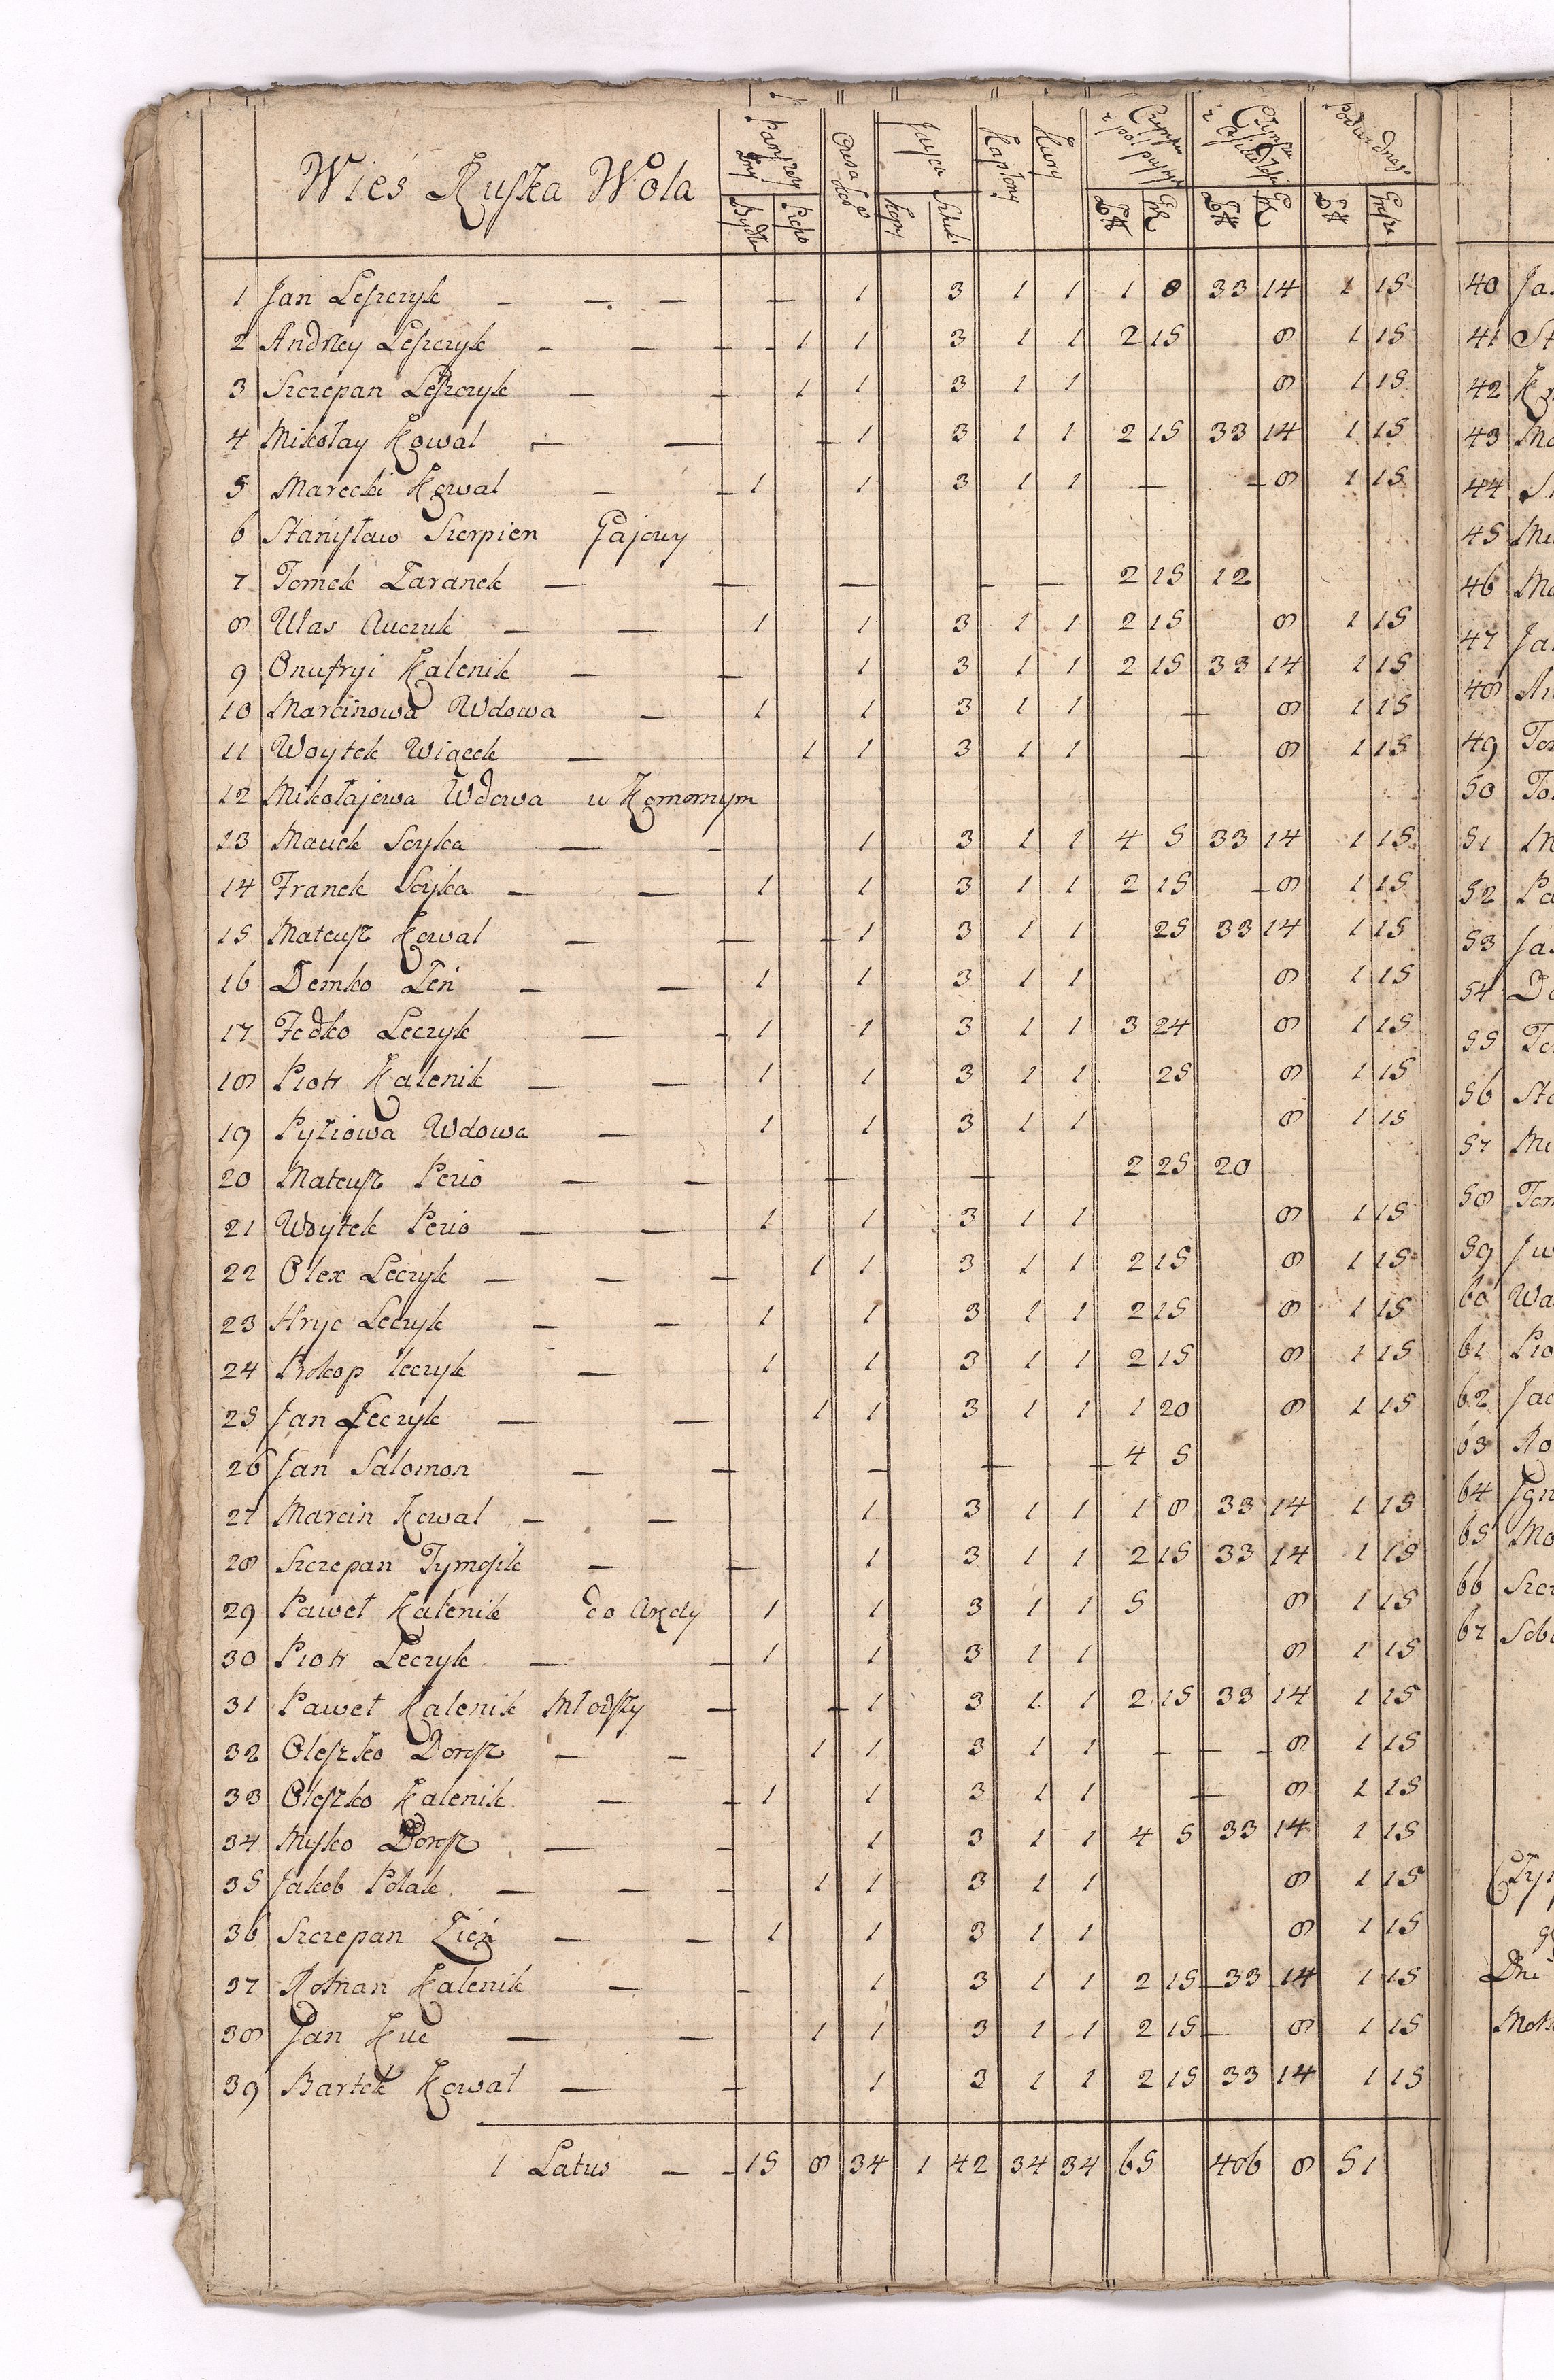 Wieś Ruska Wola
Owsa
Jayca
Kapłony
Kury
Bydłem
Kopy
Sztuk
1 Jan Leszczyk — — — — 1 3 1 1 1 8 33 14 1 15
2 Andrzey Leszczyk — — — 1 1 3 1 1 2 15 8 1 15
3 Szczepan Leszczyk — — 1 1 3 1 1 8 1 15
4 Mikołay Kowal — — — 1 3 1 1 2 15 33 14 1 15
5 Marecki Kowal — — 1 1 3 1 1 — — 8 1 15
6 Stanisław Sierpien Gajowy
7 Tomek Taranek — — — — — 2 15 12
8 Ulas Auczuk — — 1 1 3 1 1 2 15 8 1 15
9 Onufryi Kalenik — — 1 3 1 1 2 15 33 14 1 15
10 Marcinowa Wdowa — 1 1 3 1 1 — 8 1 15
11 Woytek Wiącek — 1 1 3 1 1 — 8 1 15
12 Mikołajowa Wdowa w Komornym
13 Maciek Soyka — — 1 3 1 1 4 5 33 14 1 15
14 Franek Soyka — — 1 1 3 1 1 2 15 — 8 1 15
15 Mateusz Kowal — — — 1 3 1 1 25 33 14 1 15
16 Demko Zen — — 1 1 3 1 1 8 1 15
17 Fedko Leczyk — — 1 1 3 1 1 3 24 8 1 15
18 Piotr Kalenik — — 1 1 3 1 1 25 8 1 15
19 Pyziowa Wdowa — 1 1 3 1 1 8 1 15
20 Mateusz Perio — — — — 2 25 20
21 Woytek Perio — — 1 1 3 1 1 8 1 15
22 Olex Leczyk — — — 1 1 3 1 1 2 15 8 1 15
23 Hryc Leczyk — — 1 1 3 1 1 2 15 8 1 15
24 Prokop Leczyk — 1 1 3 1 1 2 15 8 1 15
25 Jan Leczyk — — 1 1 3 1 1 1 20 8 1 15
26 Jan Salomon — — — — — 4 5
27 Marcin Kowal — — 1 3 1 1 1 8 33 14 1 15
28 Szczepan Tymosik — — 1 3 1 1 2 15 33 14 1 15
29 Paweł Kalenik do 1 1 3 1 1 5 8 1 15
30 Piotr Leczyk — — 1 1 3 1 1 8 1 15
31 Paweł Kalenik Młodszy — — 1 3 1 1 2 15 33 14 1 15
32 Oleszko Dorosz — — 1 1 3 1 1 — — — 8 1 15
33 Oleszko Kalenik — — 1 1 3 1 1 — 8 1 15
34 Mysko Dorosz — — 1 3 1 1 4 5 33 14 1 15
35 Jakob Polak — — — 1 1 3 1 1 8 1 15
36 Szczepan Zień — — 1 1 3 1 1 8 1 15
37 Roman Kalenik — — 1 3 1 1 2 15 33 14 1 15
38 Jan Kuc — — 1 1 3 1 1 2 15 — 8 1 15
39 Bartek Kowal — — 1 3 1 1 2 15 33 14 1 15
1 Latus — — 15 8 34 1 42 34 34 65 406 8 51
40 Ja
41 St
42 Kr
43 Ma
44
45 Mi
46 Ma
47 Ja
48 An
49 To
50 To
51 M
52 Pa
53 Ja
54 De
55
56 Sta
57 Mi
58 Tom
59 Iw
60 Wa
61 Pio
62 Jac
63 Ro
64 Ign
65 Mo
66 Szcz
67 Seb
Czyn
Dni